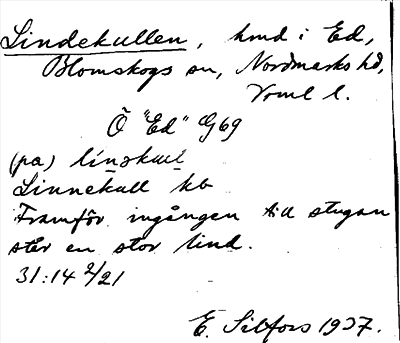 Lindekullen, hmd i Ed,
Blomskogs sn, Nordmarks hd,
Verml l.
Ö "Ed" G69
(pa) linəkul
Linnekull kb
Framför ingången till stugan
står en stor lind.
31:14 2/21
E. Silfors 1937.